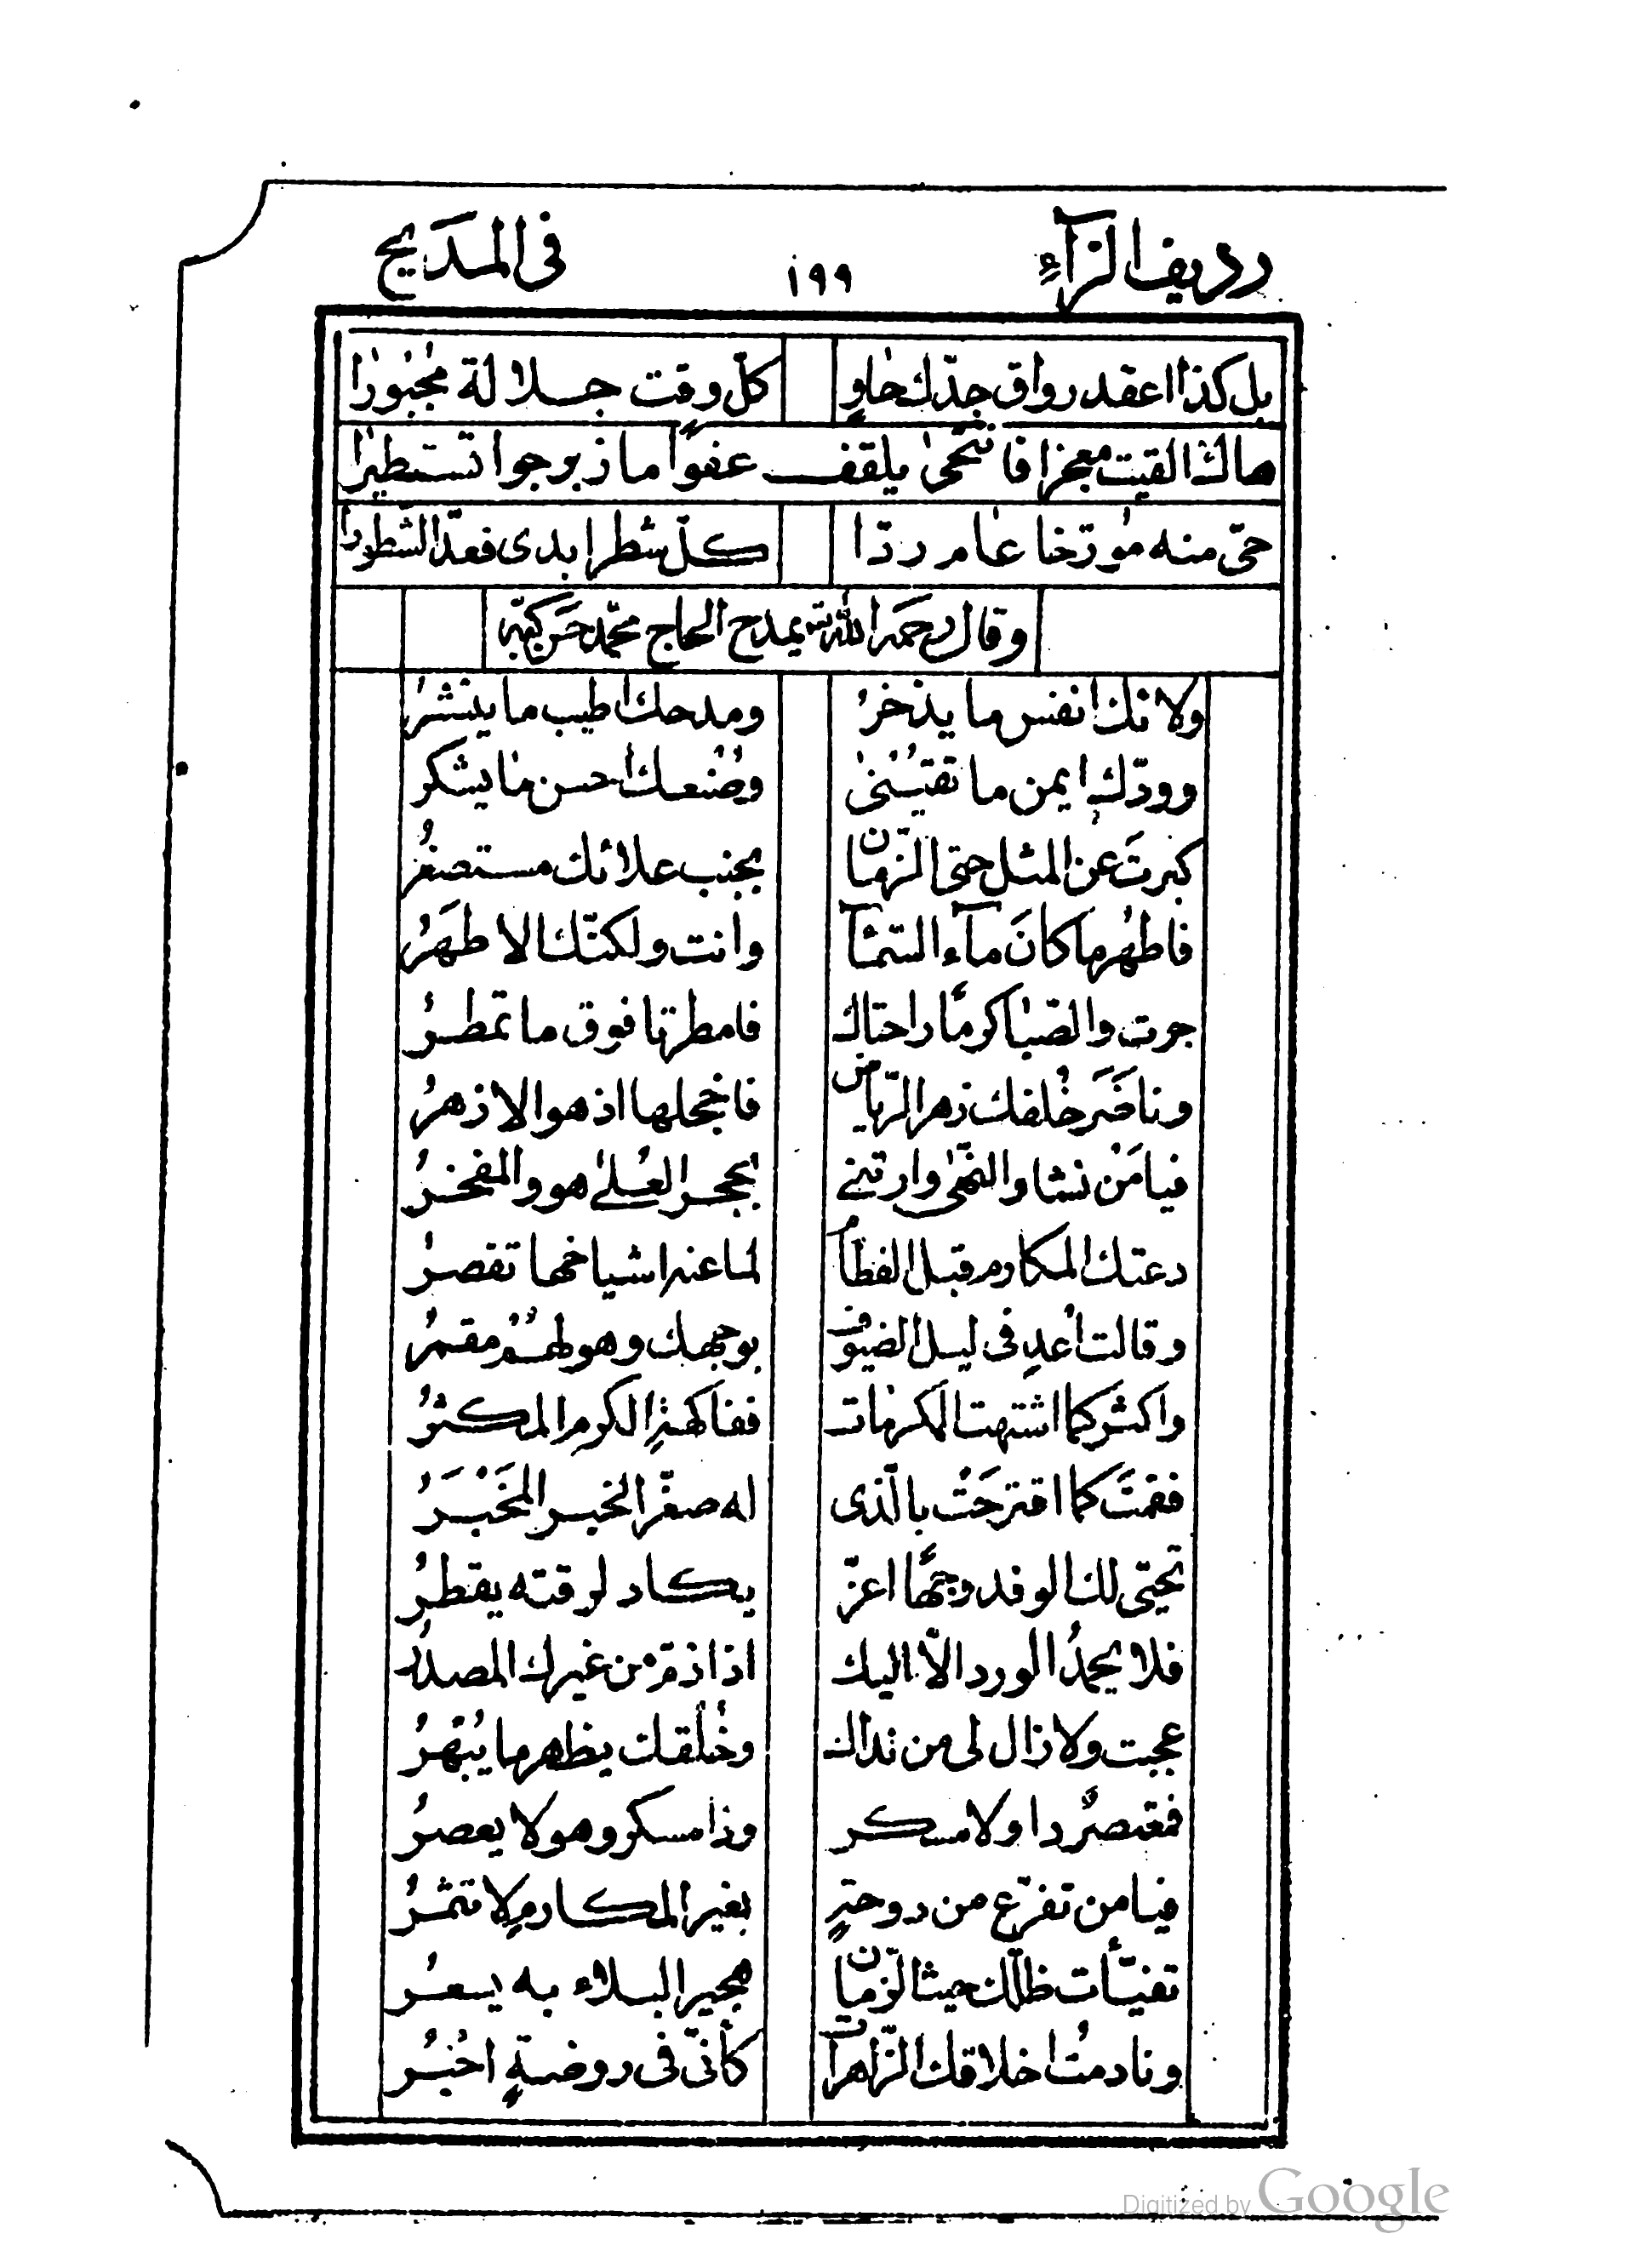 رديف الرآء ١٩٩ في المديح
بل كذا اعقد رواق جدّك حاوٍ كلّ وقت جلالة مجبورا
هاك القيت معجزا فانتحى يلقف عفواً ما زبرجوا تستطيرا
حتى منه مؤرّخا عام ردّا كلّ شطر ابدى فعدّ الشطورا
وقال رحمه الله يمدح الحاج محمد حسن كبّه
ولائك انفس ما يذخرُ ومدحك اطيب ما ينشرُ
وودّك ايمن ما تقتنى وصُنعك احسن ما يشكر
كبرتَ عن المثل حتى الزمان بجنب علائك مستصغرُ
فاطهر ما كانَ مآء السمآ وانت ولكنّك الاطهَرُ
جرت والصبا كرمًا راحتاك فامطرتا فوق ما تمطرُ
وناضَرَ خُلقك زهر الرياض فاخجلها اذ هو الازهرُ
فيا مَن نشا والنهى وارتبى بحجر العُلى هو والمفخرُ
دعتك المكارم قبل الفطام لما عنه اشياخها تقصرُ
وقالت اعد في ليل الضيوف بوجهك وهو لهم مقمرُ
واكثر كما اشتهت المكرمات ففاكهة الكرم المكثرُ
فقمتَ كما اقترحَتْ بالّذى له صغّر الخبر المَخْبَرُ
تحيّى لك الوفد وجهًا اعزّ يكاد لرقته يقطرُ
فلا يحمدُ الورد الّا اليك اذا ذمّ من غيرك المصدرُ
عجبت ولا زال لى من نداك وخُلقك يظهر ما يُبهرُ
فمعتصرٌ دا ولا مسكر وذا مسكر وهو لا يعصرُ
فيا من تفرّع من دوحةٍ بغير المكارم لا تثمرُ
تفيّأت ظلّك حيث الزمان هجير البلاء به يسعرُ
ونادمتُ اخلاقك الزاهرات كأنّى في روضةٍ احبرُ
Digitized by Google